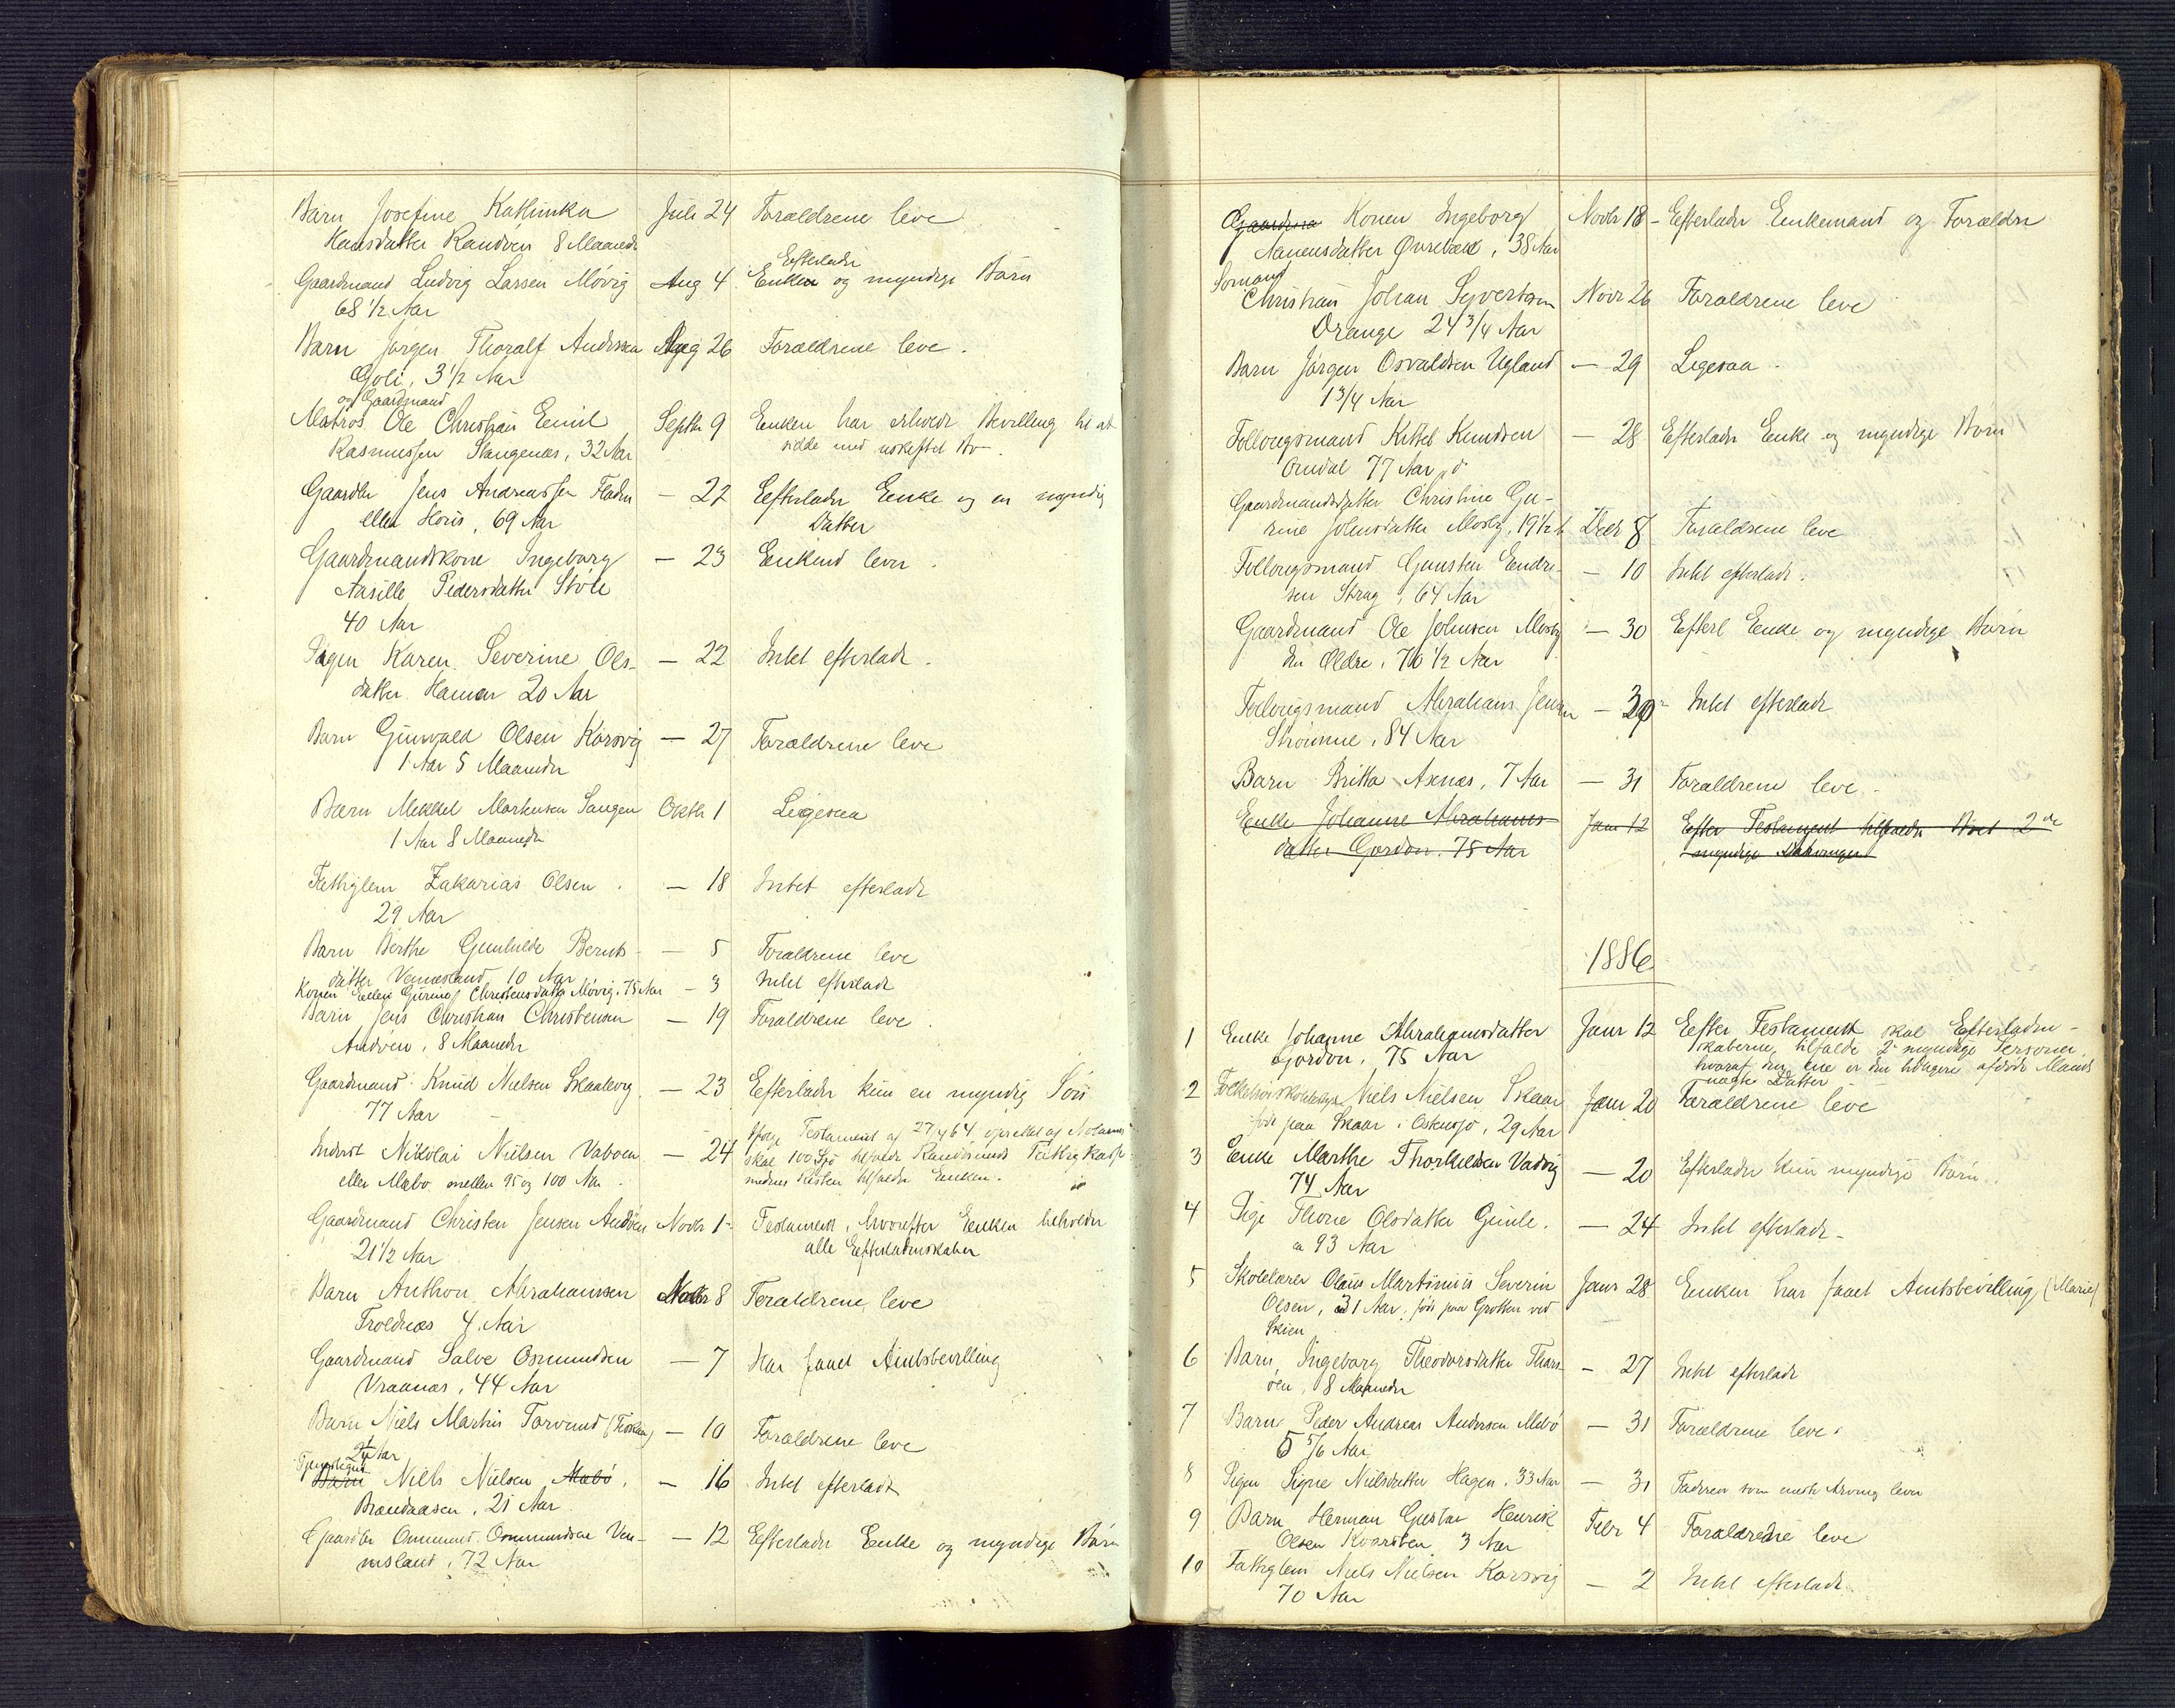 Barn Josefine Kathinka Juli 24 Forældrene leve
Hansdatter Randøen 8 Maaneder
Efterlader
Gaardmand Ludvig Larsen Møvig Aug 4 Enke og myndige Børn
68 1/2 Aar
Barn Jørgen Thoralf Andersen Aug 26 Forældrene leve.
Goli, 3 1/2 Aar
og Gaardmand
Matros Ole Christian Emil Septbr 9 Enken har erholdt Bevilling til at
Rasmussen Stangenæs, 32 Aar sidde med uskiftet Bo.
Gaardbr Jens Andreassen Fladen — 22 Efterlader Enke og en myndig
eller Høus, 69 Aar Datter
Gaardmandskone Ingeborg — 23 Enkemd lever.
Aasille Pedersdatter Støle
40 Aar
Pigen Karen Severine Ols- — 22 Intet efterladt.
datter Hamar 20 Aar
Barn Gunvald Olsen Korsvig — 27 Forældrene leve
1 Aar 5 Maaneder
Barn Mekkel Mortensen Sangen Oktbr 1 Ligesaa
1 Aar 8 Maaneder
Fattiglem Zakarias Olsen. — 18 Intet efterladt
29 Aar
Barn Berthe Gunhilde Bernts- — 5 Forældrene leve
datter Vennesland 10 Aar
Konen Ellen Gurine Christensdatter Møvig. 75 Aar — 3 Intet efterladt
Barn Jens Christian Christensen — 19 Forældrene leve.
Andøen, 8 Maaneder
Gaardmand Knud Nielsen Skaalevig — 23 Efterlader kun en myndig Søn
77 Aar
Inderst Nikolai Nielsen Vaboen — 24 Ifølge Testament af 27/4 64 oprettet af Notarius
eller Mæbø mellem 95 og 100 Aar. skal 100 Spd tilfalde Randøsunds Fattigkasse
medens Resten tilfalder Enken.
Gaardmand Christen Jensen Andøen Novbr 1 Testament, hvorefter Enken beholder
21 1/2 Aar alle Efterladenskaber
Barn Anthon Abrahamsen Novbr 8 Forældrene leve
Troldnæs 4 Aar
Gaardmand Salve Osmundsen — 7 Har faaet Amtsbevilling
Vraanæs, 44 Aar
Barn Niels Martin Torvund — 10 Forældrene leve
Aar
Tjenestegut
Barn Niels Nielsen Mæbø. — 16 Intet efterladt
Brændaasen, 21 Aar
Gaardbr Ommund Ommundsen Ven- — 12 Efterlader Enke og myndige Børn
nesland, 72 Aar
Gaardma Konen Ingeborg Novbr 18 Efterlader Enkemand og Forældre
Aanensdatter Øvrebæk, 38 Aar
Sømand
Christian Johan Syvertsen Novbr 26 Forældrene leve
Drange 24 3/4 Aar
Barn Jørgen Osvaldsen Ugland — 29 Ligesaa.
1 3/4 Aar
Follougsmand Kittel Knudsen — 28 Efterlader Enke og myndige Børn
Omdal 77 Aar
Gaardmandsdatter Christine Gu-
rine Johnsdatter Mosby, 19 1/2 Decbr 8 Forældrene leve
Follougsmand Gunsten Endre- — 10 Intet efterladt.
sen Strag, 64 Aar
Gaardmand Ole Johnsen Mosby — 30 Efterl Enke og myndige Børn
den Ældre, 76 1/2 Aar
Follougsmand Abraham Jensen — 30 Intet efterladt
Strømme, 84 Aar
Barn Britta Axnæs, 7 Aar — 31 Forældrene leve.
Enke Johanne Abrahams- Janr 12 Efter Testament tilfalder Boet 2de
datter Gordon. 75 Aar myndige Datvinger
1886
1 Enke Johanne Abrahamsdatter Janr 12 Efter Testament skal Efterladen-
Gjordon, 75 Aar skaberne tilfalde 2 myndige Personer,
hvoraf den ene er den tidligere afdøde Mands
uægte Datter
2 Folkehøiskolebestyr Niels Nielsen Skaar Janr 20 Forældrene leve
født paa Skaar i Østensjø, 29 Aar
3 Enke Marthe Thorkeldsen Vadvig — 20 Efterlader kun myndige Børn.
74 Aar
4 Pige Thone Olsdatter Gimle. — 24 Intet efterladt.
ca 93 Aar
5 Skolelærer Olaus Martinius Severin Janr 28 Enken har faaet Amtsbevilling (Marie)
Olsen, 31 Aar, født paa Grotten ved
Skien
6 Barn, Ingeborg Theodorsdatter Thors- — 27 Intet efterladt
øen, 8 Maaneder
7 Barn Peder Andreas Andersen Mebø — 31 Forældrene leve.
5 5/6 Aar
8 Pigen Signe Nielsdatter Hagen, 33 Aar — 31 Faderen som eneste Arving lever
9 Barn Herman Gustav Henrik Febr 4 Forældrene leve
Olsen Kvarsten 3 Aar
10 Fattiglem Niels Nielsen Korsvig — 2 Intet efterladt.
70 Aar